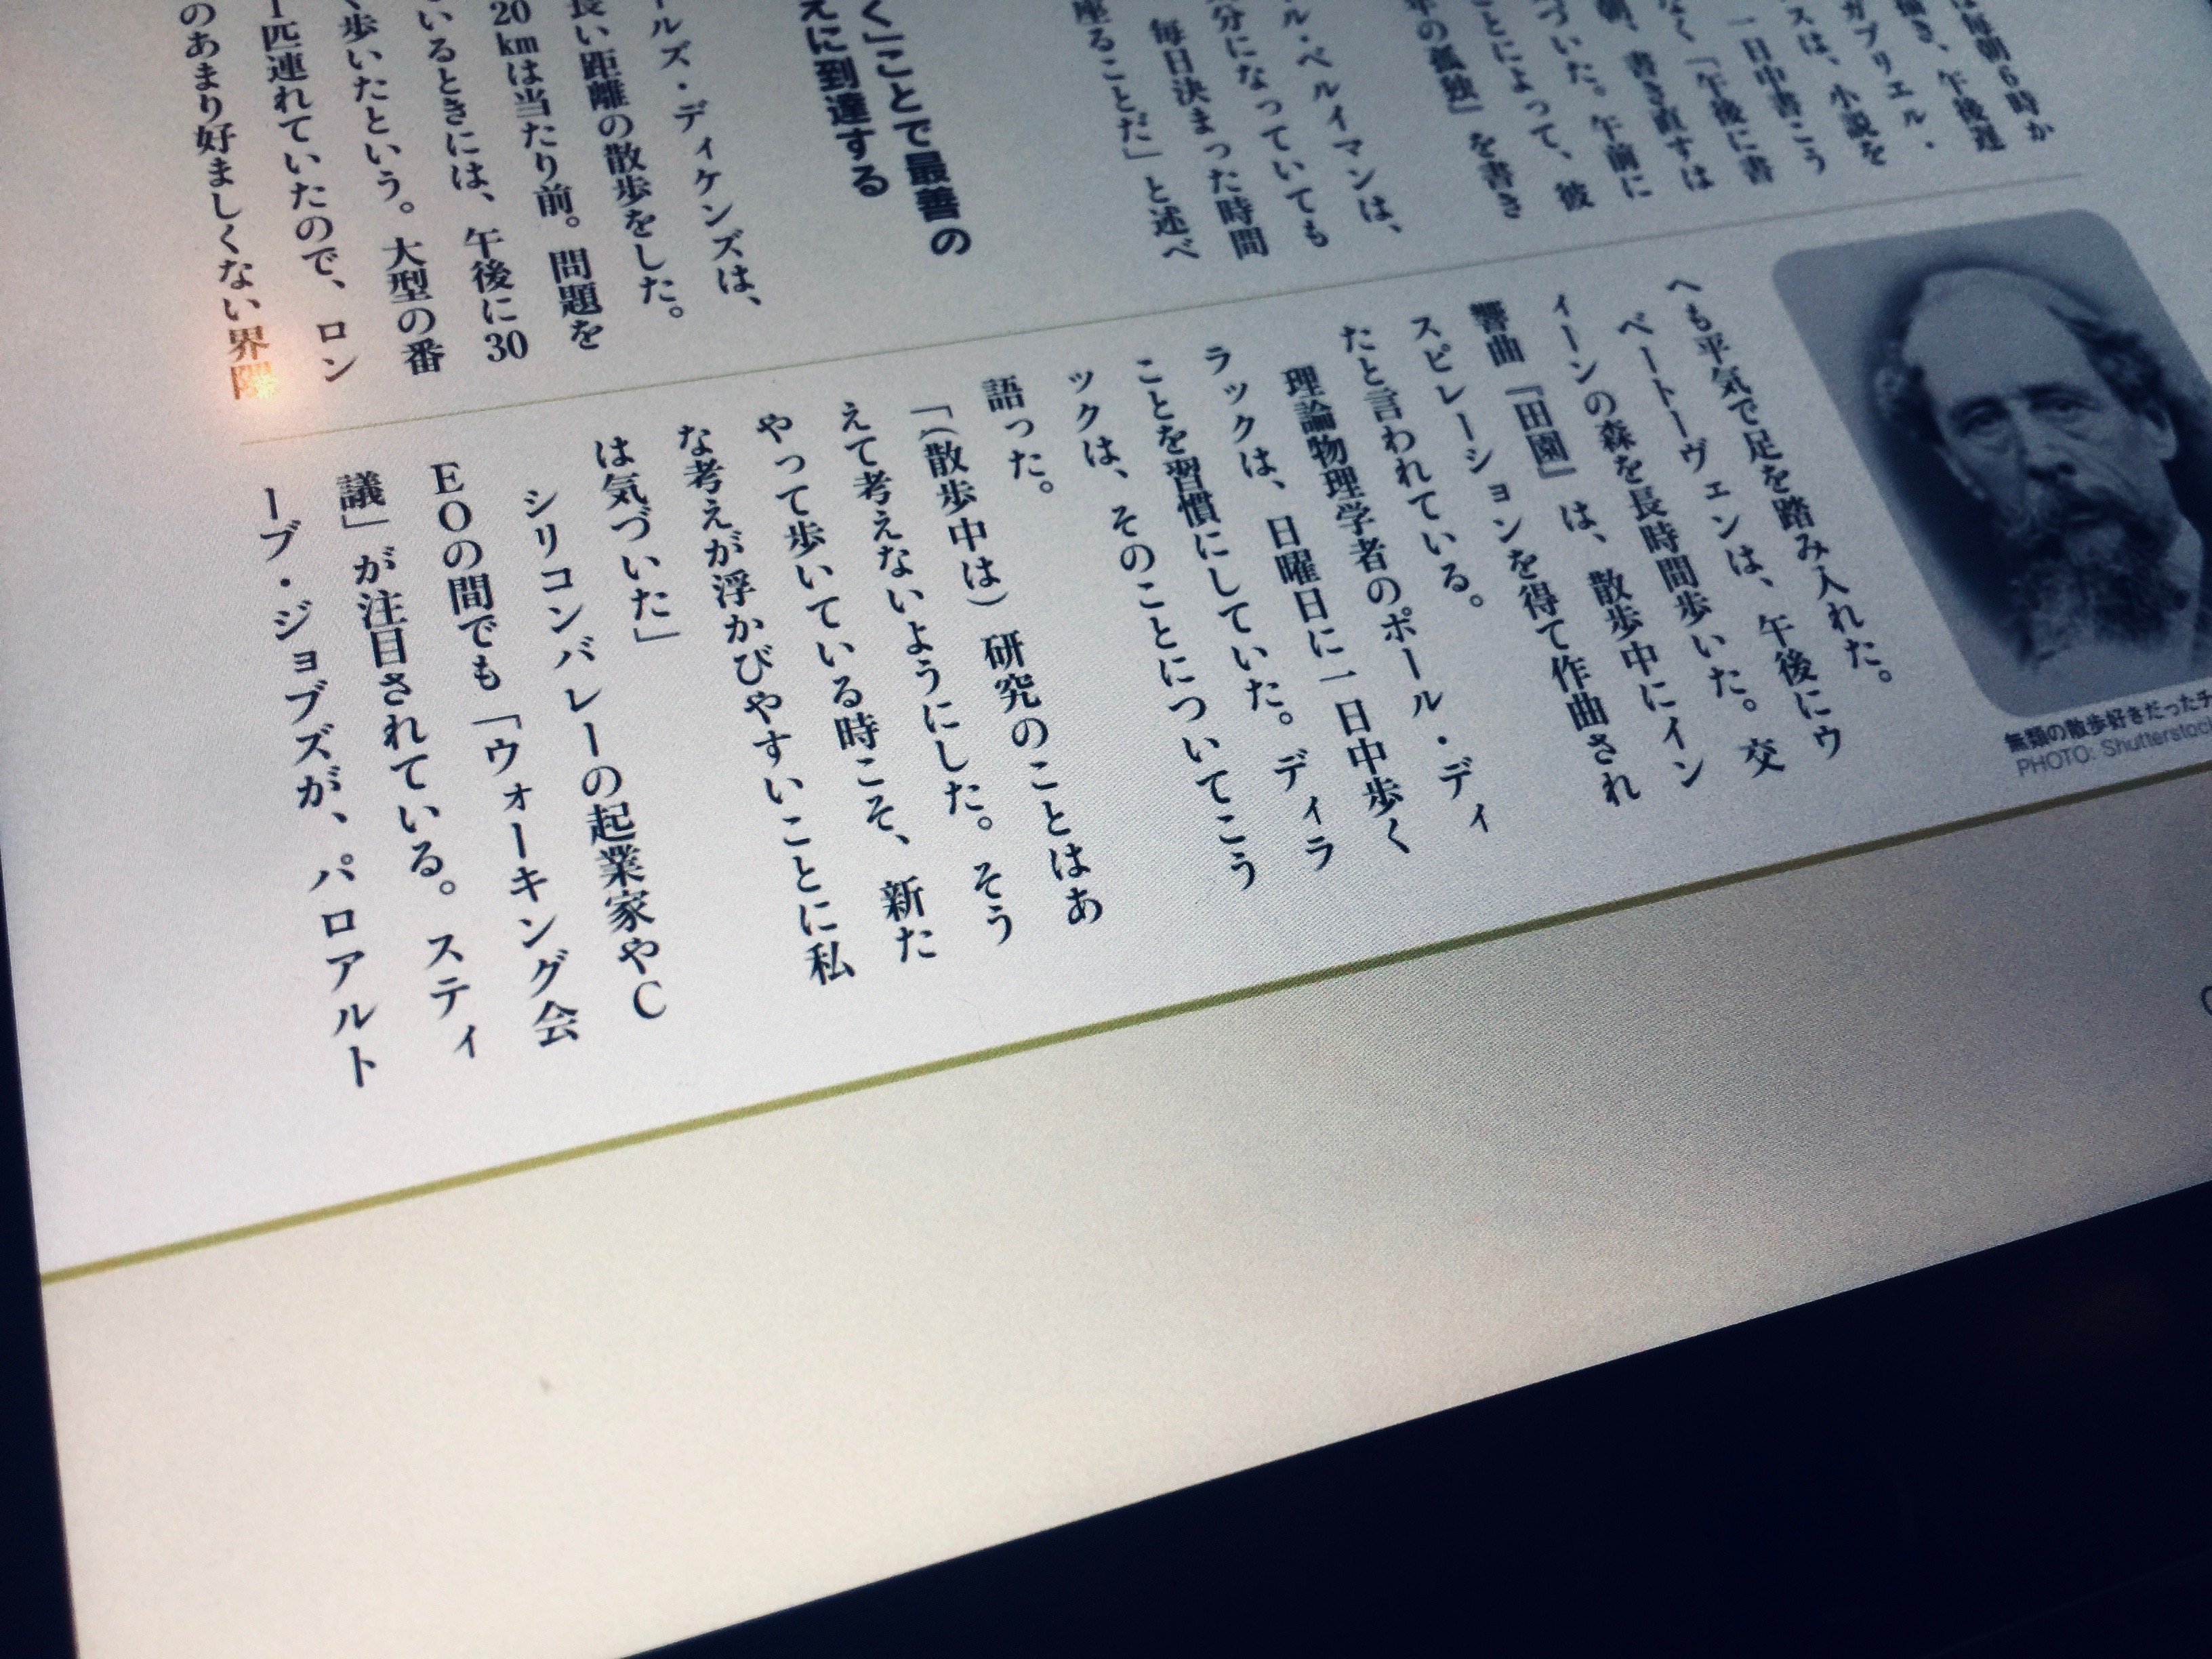 は毎朝6時か
描き、午後遅
ガブリエル・
スは、小説を
一日中書こう
なく「午後に書
朝、書き直すは
づいた。午前に
ことによって、彼
年の孤独』を書き
ル・ベルイマンは、
分になっていても
毎日決まった時間
座ることだ」と述べ
く」ことで最善の
えに到達する
ールズ・ディケンズは、
長い距離の散歩をした。
20kmは当たり前。問題を
いるときには、午後に30
く歩いたという。大型の番
1匹連れていたので、ロン
のあまり好ましくない界隈
無類の散歩好きだったチ
PHOTO: Shutterstock
へも平気で足を踏み入れた。
ベートーヴェンは、午後にウ
ィーンの森を長時間歩いた。交
響曲『田園』は、散歩中にイン
スピレーションを得て作曲され
たと言われている。
理論物理学者のポール・ディ
ラックは、日曜日に一日中歩く
ことを習慣にしていた。ディラ
ックは、そのことについてこう
語った。
「(散歩中は)研究のことはあ
えて考えないようにした。そう
やって歩いている時こそ、新た
な考えが浮かびやすいことに私
は気づいた」
シリコンバレーの起業家やC
EOの間でも「ウォーキング会
議」が注目されている。スティ
ーブ・ジョブズが、パロアルト